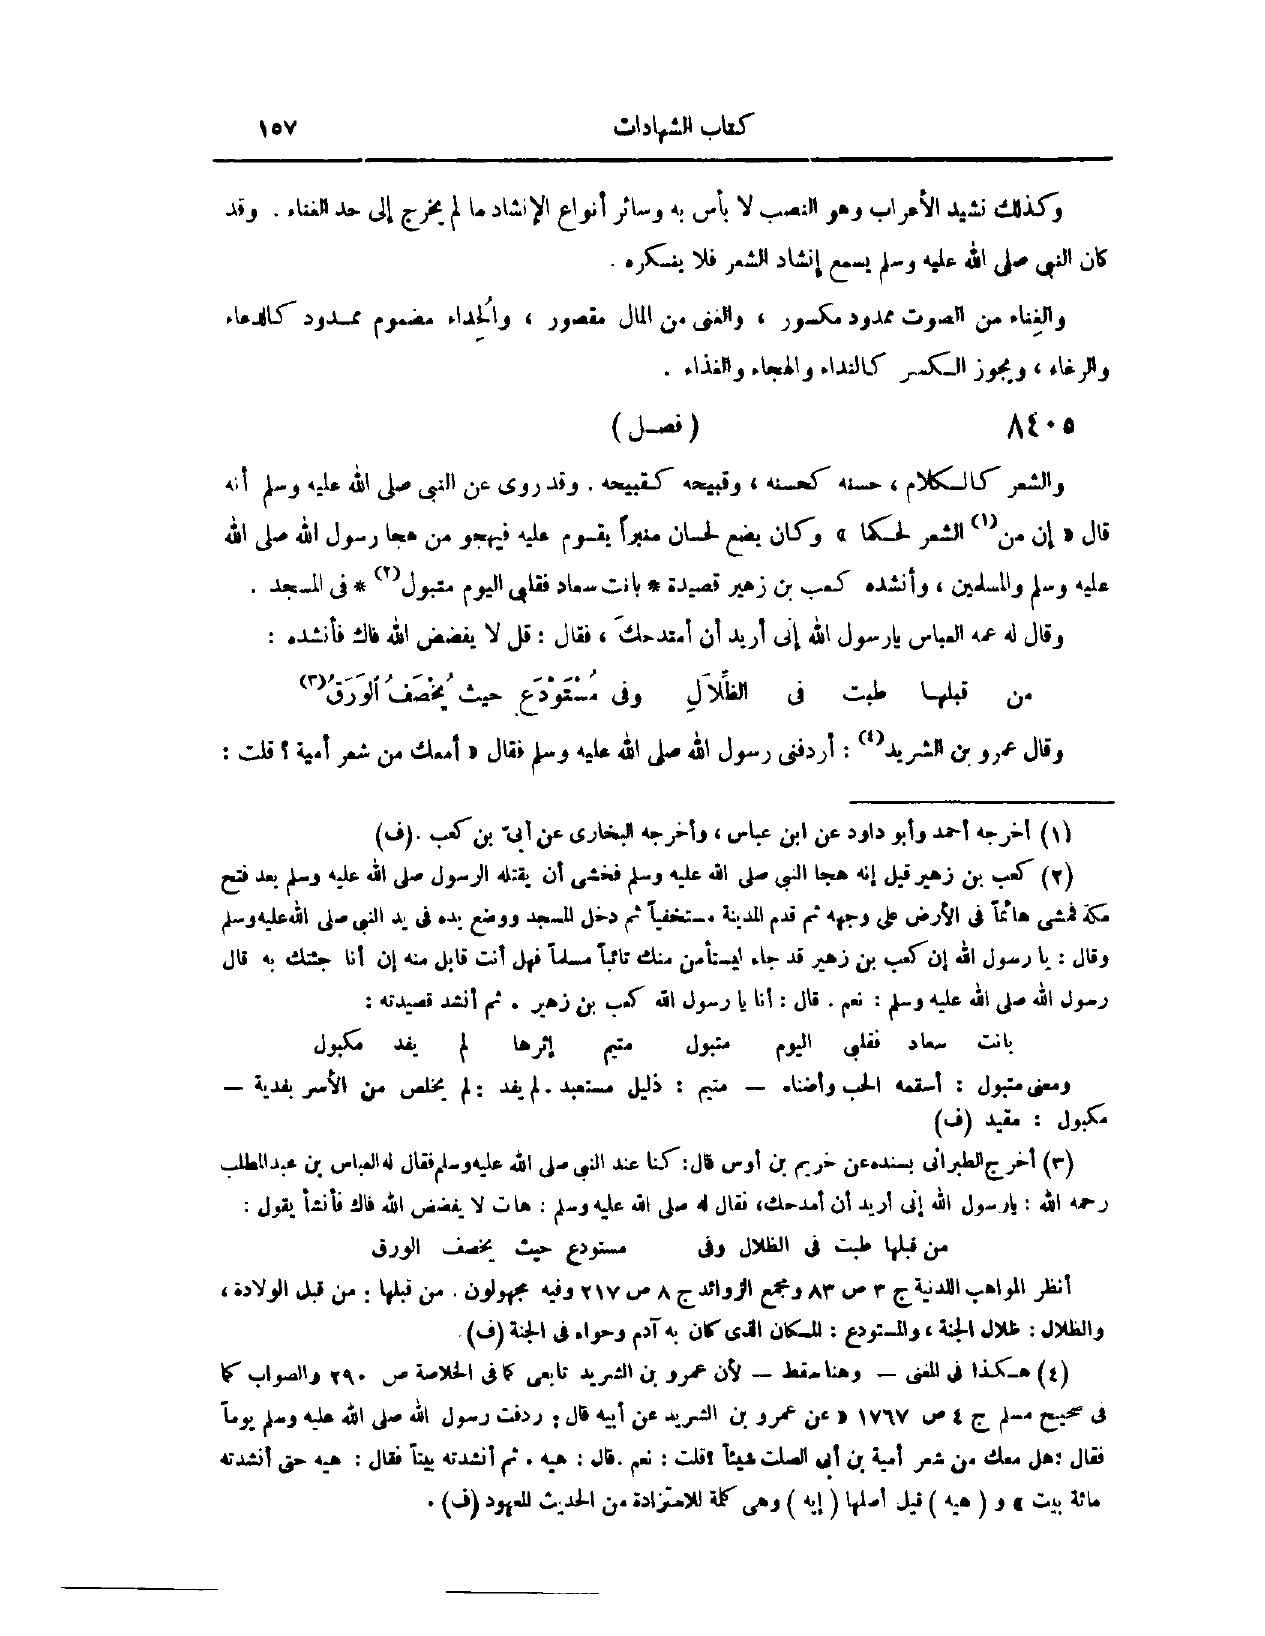 كتاب الشهادات ١٥٧
وكذلك نشيد الأعراب وهو النصب لا بأس به وسائر أنواع الإنشاد ما لم يخرج إلى حد الغناء . وقد
كان النبي صلى الله عليه وسلم يسمع إنشاد الشعر فلا ينكره .
والغِناء من الصوت ممدود مكسور ، والغنى من المال مقصور ، والحُِداء مضموم ممدود كالدعاء
والرغاء ، ويجوز الكسر كالنداء والهجاء والغذاء .
٨٤٠٥ ( فصل )
والشعر كالكلام ، حسنه كحسنه ، وقبيحه كقبيحه . وقد روى عن النبى صلى الله عليه وسلم أنه
قال « إن من(١) الشعر لحكما » وكان يضع لحسان منبراً يقوم عليه فيهجو من هجا رسول الله صلى الله
عليه وسلم والمسلمين ، وأنشده كعب بن زهير قصيدة * بانت سعاد فقلبى اليوم متبول(٢) * فى المسجد .
وقال له عمه العباس يارسول الله إنى أريد أن أمتدحكَ ، فقال : قل لا يفضض الله فاك فأنشده :
من قبلها طبت فى الظِّلاَلِ وفى مُسْتَوْدَعٍ حيث يُخْصَفُ اُلوَرَقُ(٣)
وقال عمرو بن الشريد(٤) : أردفنى رسول الله صلى الله عليه وسلم فقال « أمعك من شعر أمية ؟ قلت :
(١) أخرجه أحمد وأبو داود عن ابن عباس ، وأخرجه البخارى عن أبىّ بن كعب . (ف)
(٢) كعب بن زهير قيل إنه هجا النبي صلى الله عليه وسلم فخشى أن يقتله الرسول صلى الله عليه وسلم بعد فتح
مكة فمشى هائماً فى الأرض على وجهه ثم قدم المدينة مستخفياً ثم دخل المسجد ووضع يده فى يد النبي صلى الله عليه وسلم
وقال : يا رسول الله إن كعب بن زهير قد جاء ليستأمن منك تائباً مسلماً فهل أنت قابل منه إن أنا جئتك به قال
رسول الله صلى الله عليه وسلم : نعم . قال : أنا يا رسول الله كعب بن زهير . ثم أنشد قصيدته :
بانت سعاد فقلبي اليوم متبول متيم إثرها لم يفد مكبول
ومعنى متبول : أسقمه الحب وأضناه — متيم : ذليل مستعبد . لم يفد : لم يخلص من الأسر بفدية —
مكبول : مقيد (ف)
(٣) أخرج الطبرانى بسنده عن خريم بن أوس قال : كنا عند النبي صلى الله عليه وسلم فقال له العباس بن عبد المطلب
رحمه الله : يارسول الله إنى أريد أن أمدحك، فقال له صلى الله عليه وسلم : هات لا يفضض الله فاك فأنشأ يقول :
من قبلها طبت فى الظلال وفى مستودع حيث يخصف الورق
أنظر المواهب اللدنية ج ٣ ص ٨٣ ومجمع الزوائد ج ٨ ص ٢١٧ وفيه مجهولون . من قبلها : من قبل الولادة ،
والظلال : ظلال الجنة ، والمستودع : المكان الذى كان به آدم وحواء فى الجنة (ف) .
(٤) هكذا فى المغنى — وهنا سقط — لأن عمرو بن الشريد تابعى كما فى الخلاصة ص ٢٩٠ والصواب كما
فى صحيح مسلم ج ٤ ص ١٧٦٧ « عن عمرو بن الشريد عن أبيه قال : ردفت رسول الله صلى الله عليه وسلم يوماً
فقال : هل معك من شعر أمية بن أبى الصلت شيئاً ؟ قلت : نعم . قال : هيه . ثم أنشدته بيتاً فقال : هيه حتى أنشدته
مائة بيت » و ( هيه ) قيل أصلها ( إيه ) وهى كلمة للاستزادة من الحديث المعهود (ف) .